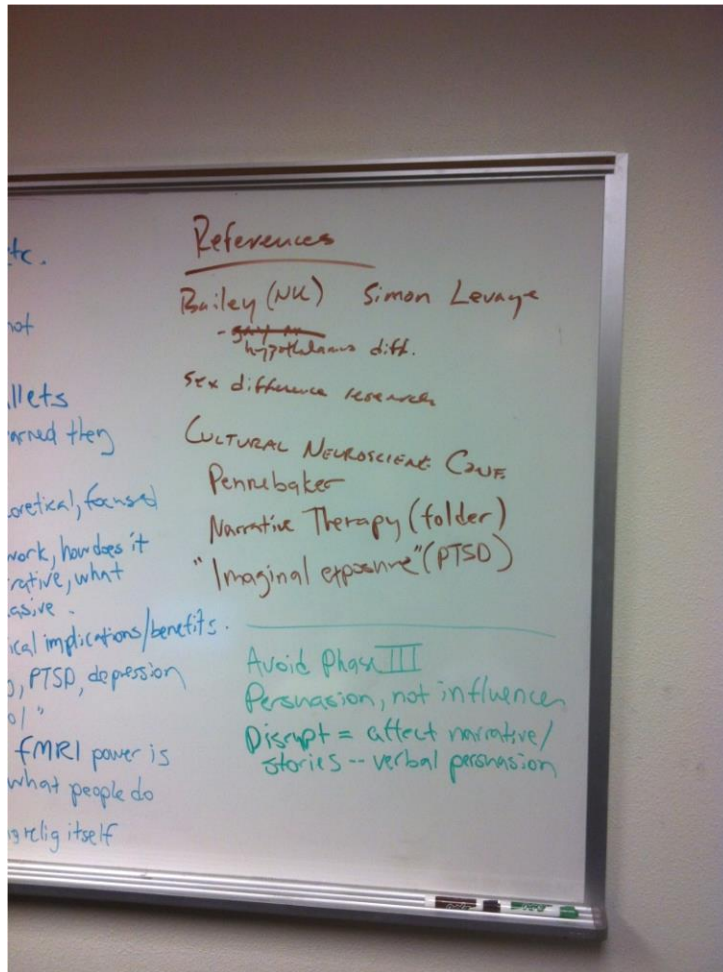 etc.
not
llets
arned they
oretical, focused
work, how does it
rative, what
asive.
ical implications/benefits.
), PTSD, depression
ol"
fMRI power is
what people do
relig itself
References
Bailey (NU) Simon Levaye
hypothalamus diff.
Sex difference research
CULTURAL NEUROSCIENCE CONF.
Pennebaker
Narrative Therapy (folder)
"Imaginal exposure" (PTSD)
Avoid Phase III
Persuasion, not influence
Disrupt = affect narrative/
stories -- verbal persuasion